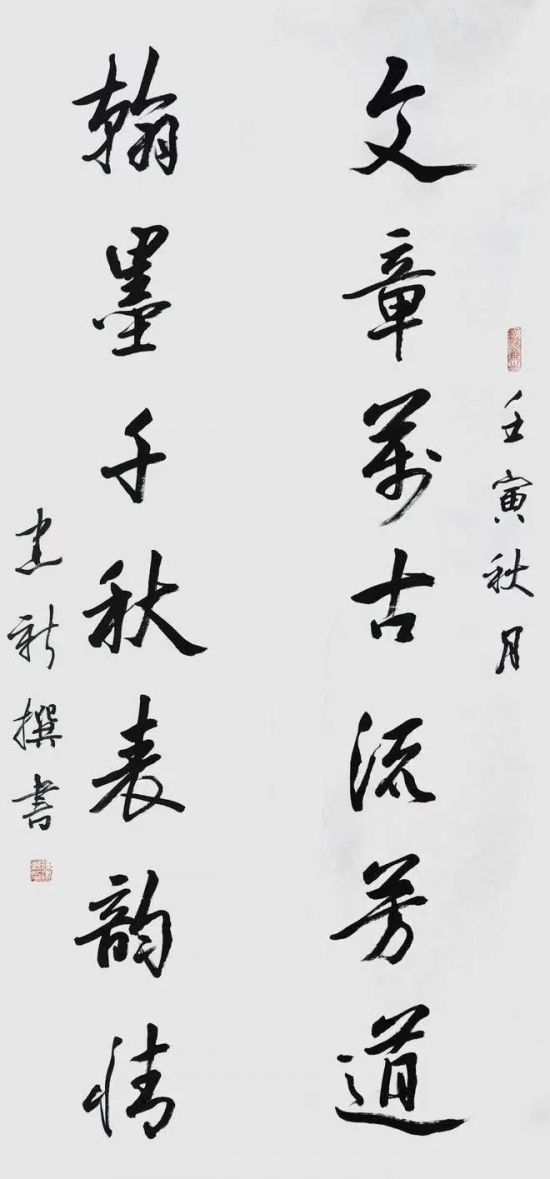 壬寅秋月
文章萬古流芳道
翰墨千秋表韵情
建新撰书